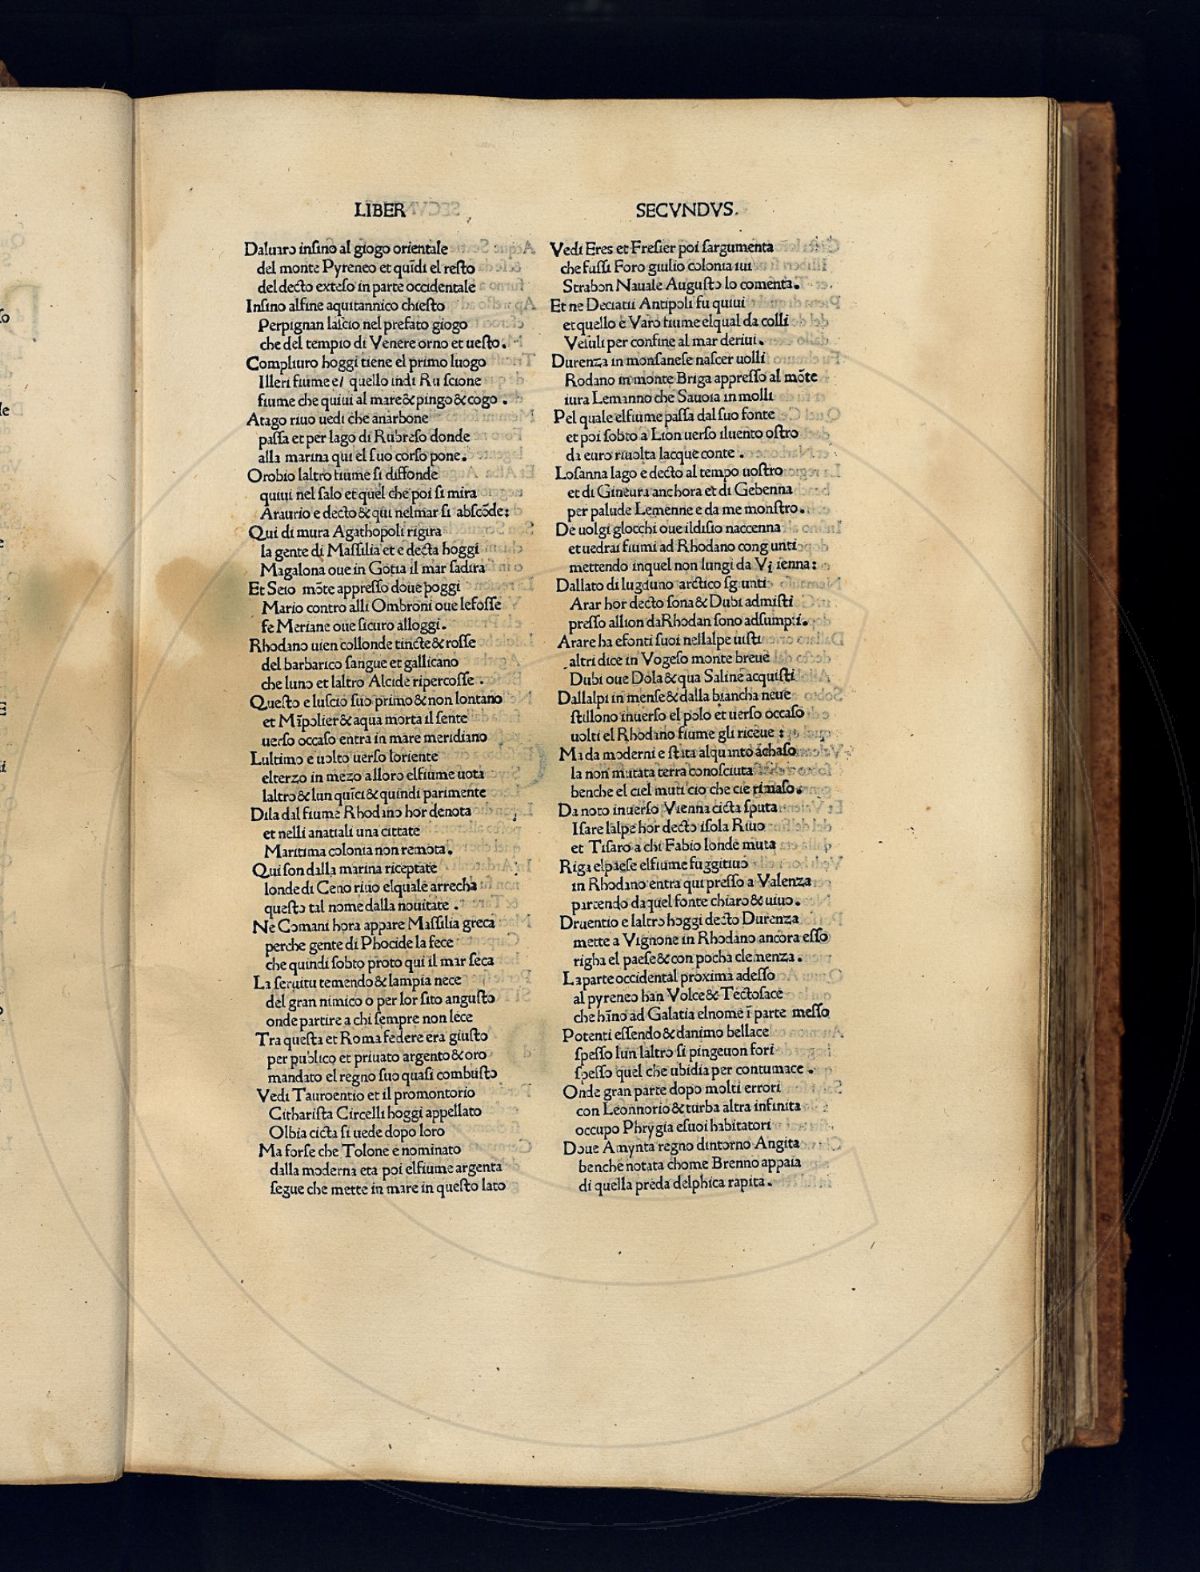 LIBER
SECVNDVS.
Daluaro insino al giogo orientale
del monte Pyreneo et quĩdi el resto
del decto exteso in parte occidentale
Insino alfine aquitannico chiesto
Perpignan lascio nel prefato giogo
che del tempio di Venere orno et uesto.
Compliuro hoggi tiene el primo luogo
Illeri fiume e/ quello indi Ru scione
fiume che quiui al mare&pingo&cogo .
Atago riuo uedi che anarbone
passa et per lago di Rubreso donde
alla marina qui el suo corso pone.
Orobio laltro fiume si diffonde
quiui nel salo et quel che poi si mira
Araurio e decto&qui nelmar si abscõde:
Qui di mura Agathopoli rigira
la gente di Massilia et e decta hoggi
Magalona oue in Gotia il mar sadira
Et Seio mõte appresso doue poggi
Mario contro alli Ombroni oue lefosse
fe Meriane oue sicuro alloggi.
Rhodano uien collonde tincte&rosse
del barbarico sangue et gallicano
che luno et laltro Alcide ripercosse .
Questo e luscio suo primo&non lontano
et Mĩpolier&aqua morta il sente
uerso occaso entra in mare meridiano
Lultimo e uolto uerso loriente
elterzo in mezo alloro elfiume uota
laltro&lun quĩci&quindi parimente
Dila dal fiume Rhodano hor denota
et nelli anatiali una cittate
Maritima colonia non remota.
Qui son dalla marina riceptate
londe di Ceno riuo elquale arrecha
questo tal nome dalla nouitate .
Ne Comani hora appare Massilia greca
perche gente di Phocide la fece
che quindi sobto proto qui il mar seca
La seruitu temendo&lampia nece
del gran nimico o per lor sito angusto
onde partire a chi sempre non lece
Tra questa et Roma federe era giusto
per publico et priuato argento&oro
mandato el regno suo quasi combusto
Vedi Tauroentio et il promontorio
Citharista Circelli hoggi appellato
Olbia cicta si uede dopo loro
Ma forse che Tolone e nominato
dalla moderna eta poi elfiume argenta
segue che mette in mare in questo lato
Vedi Eres et Fresier poi sargumenta
che fussi Foro giulio colonia iui
Strabon Nauale Augusto lo comenta.
Et ne Deciatii Antipoli fu quiui
et quello e Varo fiume elqual da colli
Vesuli per confine al mar deriui.
Durenza in monsanese nascer uolli
Rodano in monte Briga appresso al mõte
iura Lemanno che Sauoia in molli
Pel quale elfiume passa dal suo fonte
et poi sobto a Lion uerso iluento ostro
da euro riuolta lacque conte .
Losanna lago e decto al tempo uostro
et di Gineura anchora et di Gebenna
per palude Lemenne e da me monstro.
De uolgi glocchi oue ildisio naccenna
et uedrai fiumi ad Rhodano cong unti
mettendo inquel non lungi da Vi ienna:
Dallato di lugduno arctico sg unti
Arar hor decto sona&Dubi admisti
presso allion daRhodan sono adsumpti.
Arare ha efonti suoi nellalpe uisti
altri dice in Vogeso monte breue
Dubi oue Dola&qua Saline acquisti
Dallalpi in mense&dalla biancha neue
stillono inuerso el polo et uerso occaso
uolti el Rhodano fiume gli riceue :
Ma da moderni e stata alquanto ãchaso
la non mutata terra conosciuta
benche el ciel muti cio che cie rimaso.
Da noto inuerso Vienna cicta sputa
Isare lalpe hor decto isola Riuo
et Tisaro a chi Fabio londe muta
Riga elpaese elfiume fuggitiuo
in Rhodano entra qui presso a Valenza
partendo da quel fonte chiaro&uiuo.
Druentio e laltro hoggi decto Durenza
mette a Vignone in Rhodano ancora esso
righa el paese&con pocha clemenza.
La parte occidental proxima adesso
al pyreneo han Volce&Tectosace
che hãno ad Galatia elnome ĩ parte messo
Potenti essendo&danimo bellace
spesso lun laltro si pingeuon fori
spesso quel che ubidia per contumace .
Onde gran parte dopo molti errori
con Leonnorio&turba altra infinita
occupo Phrygia esuoi habitatori
Doue Amynta regno dintorno Angita
benche notata chome Brenno appaia
di quella preda delphica rapita.